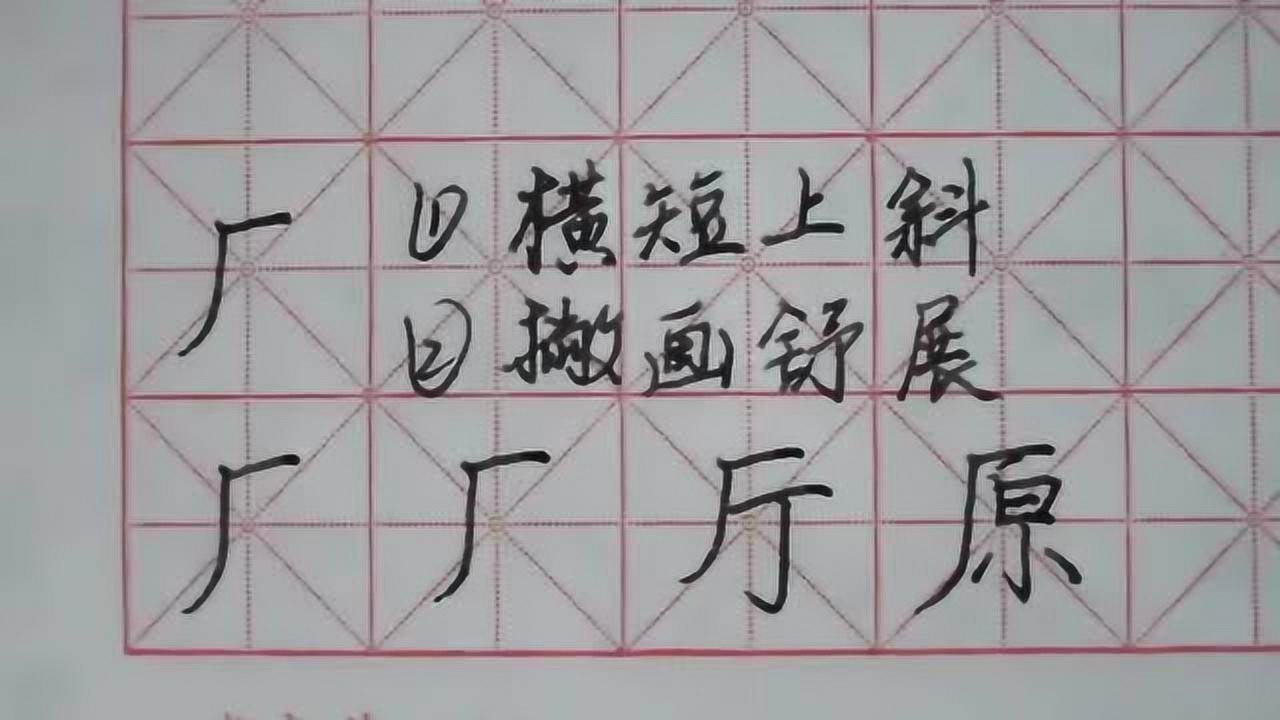 厂 ①横短上斜
②撇画舒展
厂 厂 厅 原